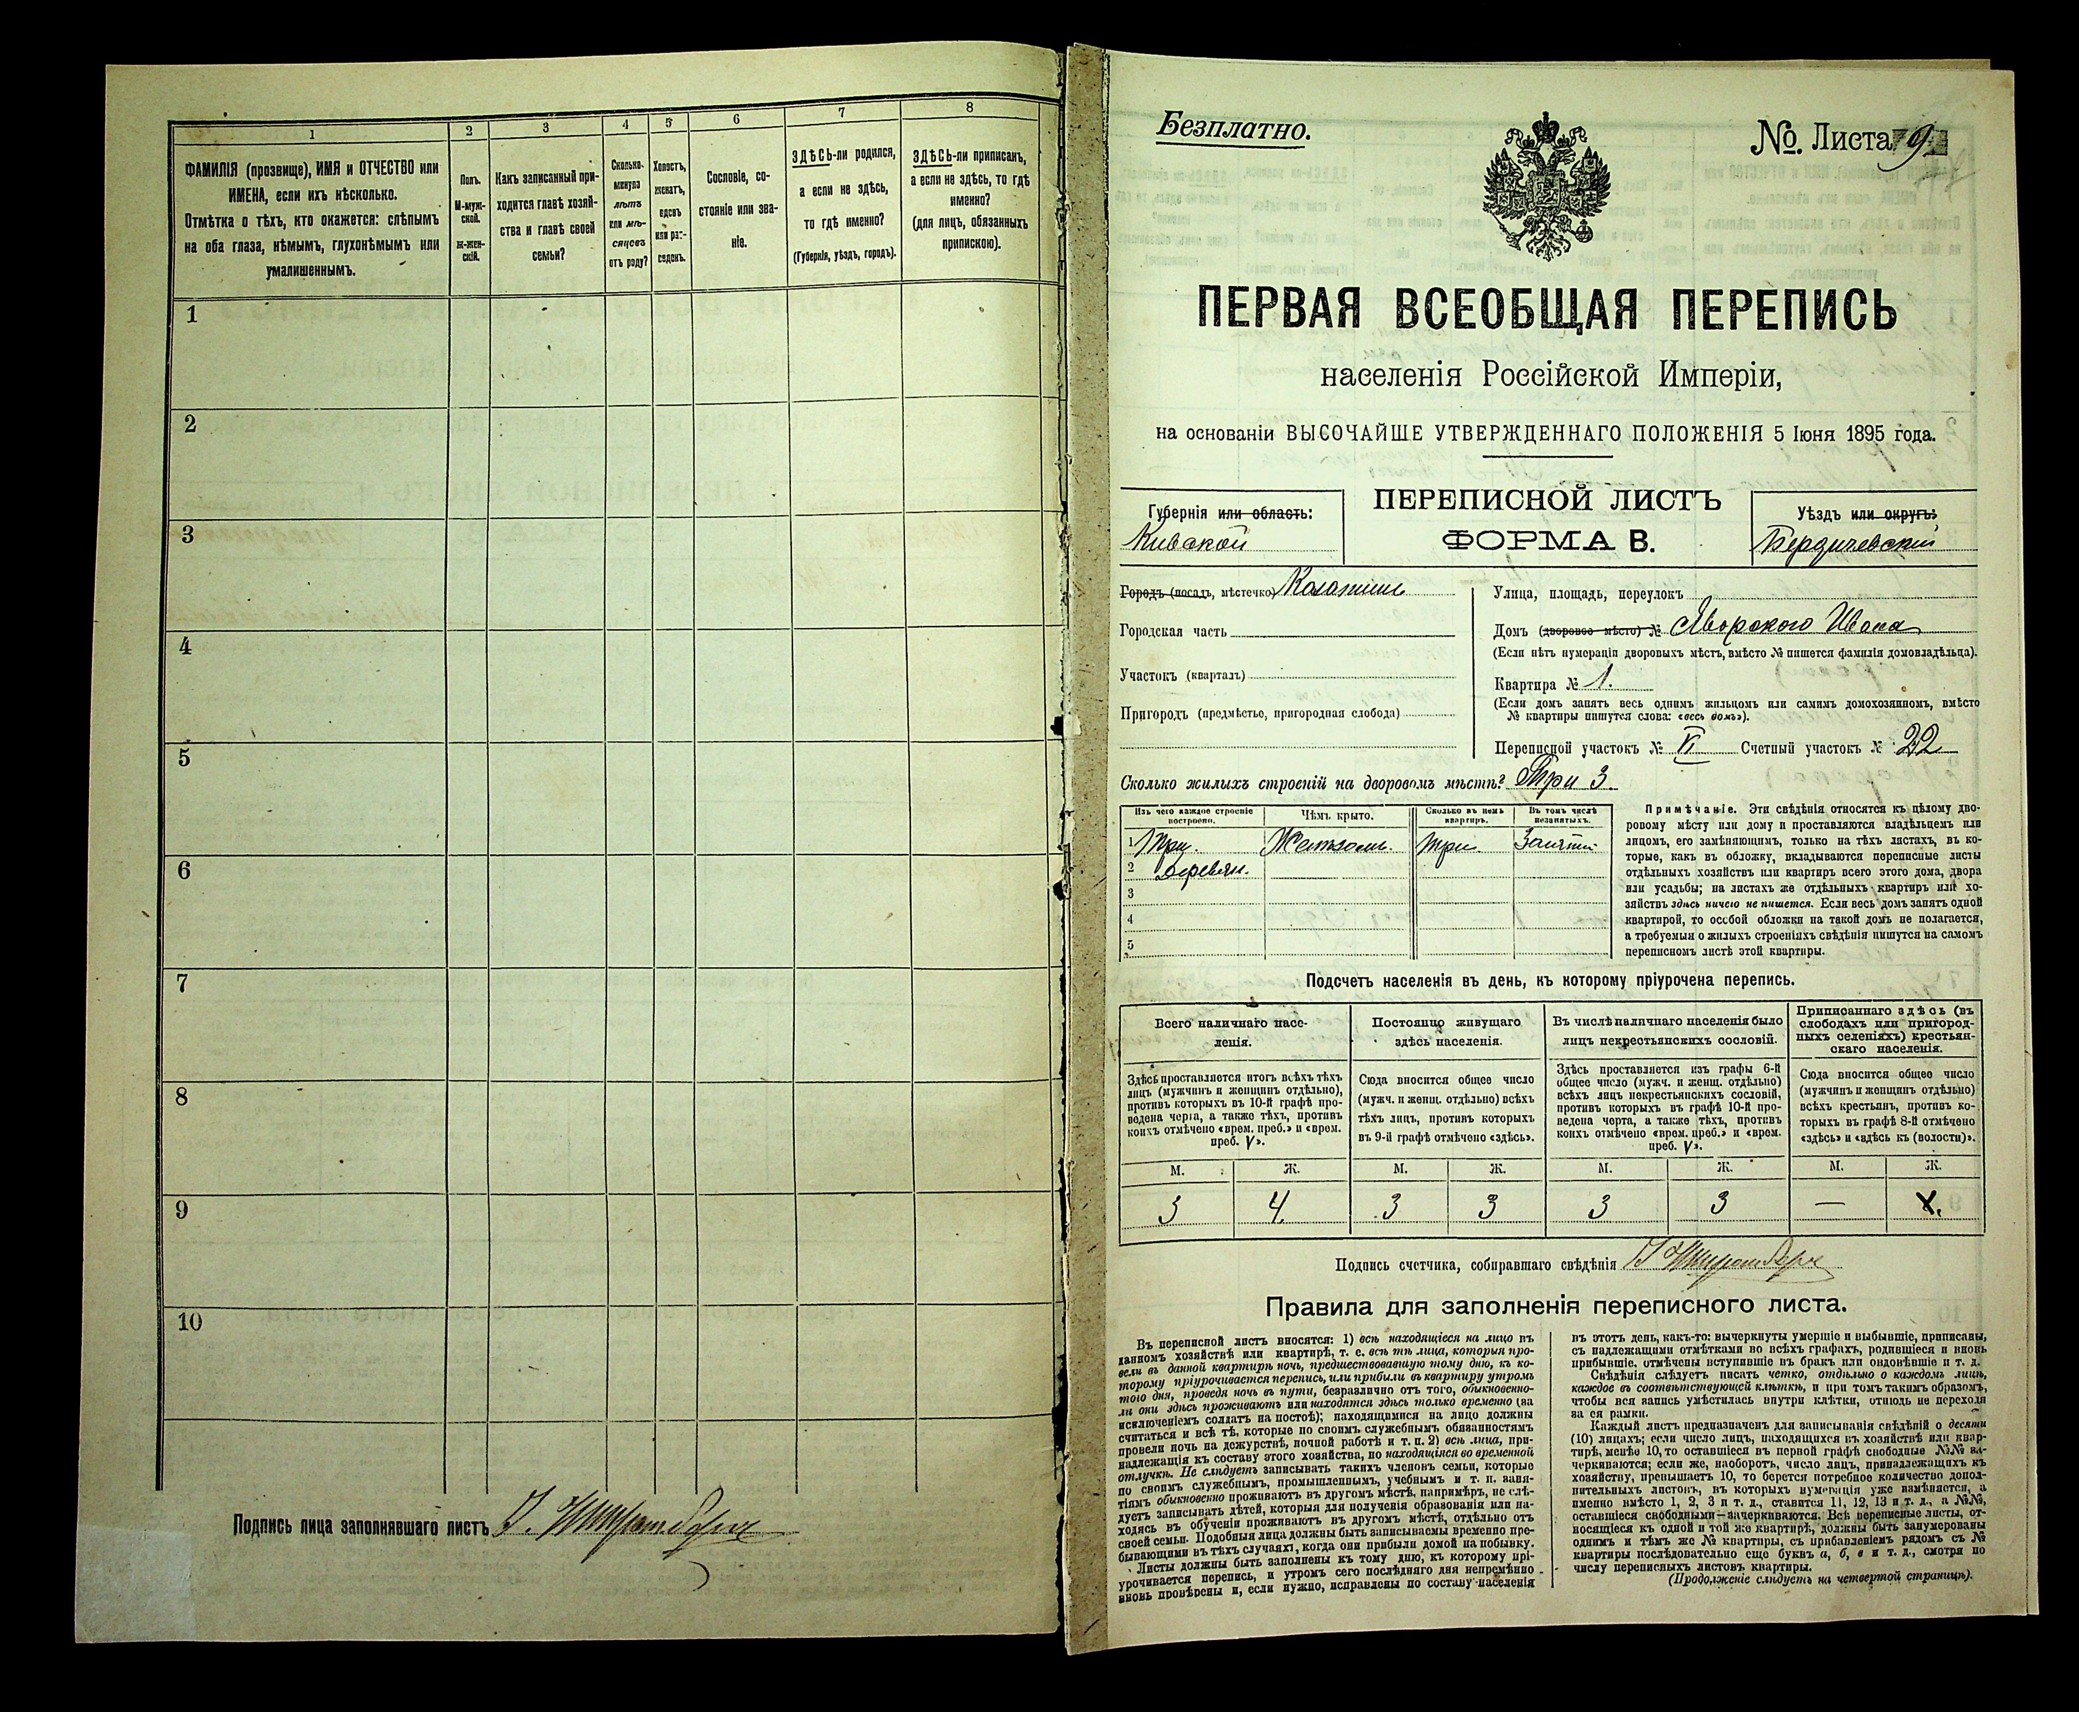 1
2
3
4
5
6
7
8
ФАМИЛІЯ (прозвище), ИМЯ и ОТЧЕСТВО или
ИМЕНА, если ихъ нѣсколько.
Отмѣтка о тѣхъ, кто окажется: слѣпымъ
на оба глаза, нѣмымъ, глухонѣмымъ или
умалишеннымъ.
Полъ.
М-муж-
ской.
Ж-жен-
скій.
Какъ записанный при-
ходится главѣ хозяй-
ства и главѣ своей
семьи?
Сколько
минуло
лѣтъ
или мѣ-
сяцевъ
отъ роду?
Холостъ,
женатъ,
вдовъ
или раз-
веденъ.
Сословіе, со-
стояніе или зва-
ніе.
ЗДѢСЬ-ли родился,
а если не здѣсь,
то гдѣ именно?
(Губернія, уѣздъ, городъ).
ЗДѢСЬ-ли приписанъ,
а если не здѣсь, то гдѣ
именно?
(для лицъ, обязанныхъ
припискою).
1
2
3
4
5
6
7
8
9
10
Подпись лица заполнявшаго листъ
Безплатно.
№. Листа 9
ПЕРВАЯ ВСЕОБЩАЯ ПЕРЕПИСЬ
населенія Россійской Имперіи,
на основаніи ВЫСОЧАЙШЕ УТВЕРЖДЕННАГО ПОЛОЖЕНІЯ 5 Іюня 1895 года.
Губернія или область:
Кивской
ПЕРЕПИСНОЙ ЛИСТЪ
ФОРМА В.
Уѣздъ или округъ:
Бердичевский
Городъ (посадъ, мѣстечко) Козатинъ
Городская часть
Участокъ (кварталъ)
Пригородъ (предмѣстье, пригородная слобода)
Улица, площадь, переулокъ
Домъ (дворовое мѣсто) № Яворского Ивана
(Если нѣтъ нумераціи дворовыхъ мѣстъ, вмѣсто № пишется фамилія домовладѣльца).
Квартира № 1.
(Если домъ занятъ весь однимъ жильцомъ или самимъ домохозяиномъ, вмѣсто
№ квартиры пишутся слова: «весь домъ»).
Переписной участокъ № VI Счетный участокъ № 22
Сколько жилыхъ строеній на дворовомъ мѣстѣ? Три 3.
Изъ чего каждое строеніе
построено.
Чѣмъ крыто.
Сколько въ немъ
квартиръ.
Въ томъ числѣ
незанятыхъ.
1 Три. Желѣзомъ. три. Заняты
2 Деревян.
3
4
5
Примѣчаніе. Эти свѣдѣнія относятся къ цѣлому дво-
ровому мѣсту или дому и проставляются владѣльцемъ или
лицомъ, его замѣняющимъ, только на тѣхъ листахъ, въ ко-
торые, какъ въ обложку, вкладываются переписные листы
отдѣльныхъ хозяйствъ или квартиръ всего этого дома, двора
или усадьбы; на листахъ же отдѣльныхъ квартиръ или хо-
зяйствъ здѣсь ничего не пишется. Если весь домъ занятъ одной
квартирой, то особой обложки на такой домъ не полагается,
а требуемыя о жилыхъ строеніяхъ свѣдѣнія пишутся на самомъ
переписномъ листѣ этой квартиры.
Подсчетъ населенія въ день, къ которому пріурочена перепись.
Всего наличнаго насе-
ленія.
Постоянно живущаго
здѣсь населенія.
Въ числѣ наличнаго населенія было
лицъ некрестьянскихъ сословій.
Приписаннаго здѣсь (въ
слободахъ или пригород-
ныхъ селеніяхъ) крестьян-
скаго населенія.
Здѣсь проставляется итогъ всѣхъ тѣхъ
лицъ (мужчинъ и женщинъ отдѣльно),
противъ которыхъ въ 10-й графѣ про-
ведена черта, а также тѣхъ, противъ
коихъ отмѣчено «врем. преб.» и «врем.
преб. V».
Сюда вносится общее число
(мужч. и женщ. отдѣльно) всѣхъ
тѣхъ лицъ, противъ которыхъ
въ 9-й графѣ отмѣчено «здѣсь».
Здѣсь проставляется изъ графы 6-й
общее число (мужч. и женщ. отдѣльно)
всѣхъ лицъ некрестьянскихъ сословій,
противъ которыхъ въ графѣ 10-й про-
ведена черта, а также тѣхъ, противъ
коихъ отмѣчено «врем. преб.» и «врем.
преб. V».
Сюда вносится общее число
(мужчинъ и женщинъ отдѣльно)
всѣхъ крестьянъ, противъ ко-
торыхъ въ графѣ 8-й отмѣчено
«здѣсь» и «здѣсь къ (волости)».
М. Ж. М. Ж. М. Ж. М. Ж.
3 4. 3 3 3 3 —
Подпись счетчика, собиравшаго свѣдѣнія
Правила для заполненія переписного листа.
Въ переписной листъ вносятся: 1) всѣ находящіеся на лицо въ
данномъ хозяйствѣ или квартирѣ, т. е. всѣ тѣ лица, которыя про-
вели въ данной квартирѣ ночь, предшествовавшую тому дню, къ ко-
торому пріурочивается перепись, или прибыли въ квартиру утромъ
того дня, проведя ночь въ пути, безразлично отъ того, обыкновенно-
ли они здѣсь проживаютъ или находятся здѣсь только временно (за
исключеніемъ солдатъ на постоѣ); находящимися на лицо должны
считаться и всѣ тѣ, которые по своимъ служебнымъ обязанностямъ
провели ночь на дежурствѣ, ночной работѣ и т. п. 2) всѣ лица, при-
надлежащія къ составу этого хозяйства, но находящіяся во временной
отлучкѣ. Не слѣдуетъ записывать такихъ членовъ семьи, которые
по своимъ служебнымъ, промышленнымъ, учебнымъ и т. п. заня-
тіямъ обыкновенно проживаютъ въ другомъ мѣстѣ, напримѣръ, не слѣ-
дуетъ записывать дѣтей, которыя для полученія образованія или на-
ходясь въ обученіи проживаютъ въ другомъ мѣстѣ, отдѣльно отъ
своей семьи. Подобныя лица должны быть записываемы временно пре-
бывающими въ тѣхъ случаяхъ, когда они прибыли домой на побывку.
Листы должны быть заполнены къ тому дню, къ которому прі-
урочивается перепись, и утромъ сего послѣдняго дня непремѣнно
вновь провѣрены и, если нужно, исправлены по составу населенія
въ этотъ день, какъ-то: вычеркнуты умершіе и выбывшіе, приписаны,
съ надлежащими отмѣтками во всѣхъ графахъ, родившіеся и вновь
прибывшіе, отмѣчены вступившіе въ бракъ или овдовѣвшіе и т. д.
Свѣдѣнія слѣдуетъ писать четко, отдѣльно о каждомъ лицѣ,
каждое въ соотвѣтствующей клѣткѣ, и при томъ такимъ образомъ,
чтобы вся запись умѣстилась внутри клѣтки, отнюдь не переходя
за ея рамки.
Каждый листъ предназначенъ для записыванія свѣдѣній о десяти
(10) лицахъ; если число лицъ, находящихся въ хозяйствѣ или квар-
тирѣ, менѣе 10, то оставшіеся въ первой графѣ свободные №№ за-
черкиваются; если же, наоборотъ, число лицъ, принадлежащихъ къ
хозяйству, превышаетъ 10, то берется потребное количество допол-
нительныхъ листовъ, въ которыхъ нумерація уже измѣняется, а
именно вмѣсто 1, 2, 3 и т. д., ставится 11, 12, 13 и т. д., а №№,
оставшіеся свободными—зачеркиваются. Всѣ переписные листы, от-
носящіеся къ одной и той же квартирѣ, должны быть занумерованы
однимъ и тѣмъ же № квартиры, съ прибавленіемъ рядомъ съ №
квартиры послѣдовательно еще буквъ а, б, в и т. д., смотря по
числу переписныхъ листовъ квартиры.
(Продолженіе слѣдуетъ на четвертой страницѣ).